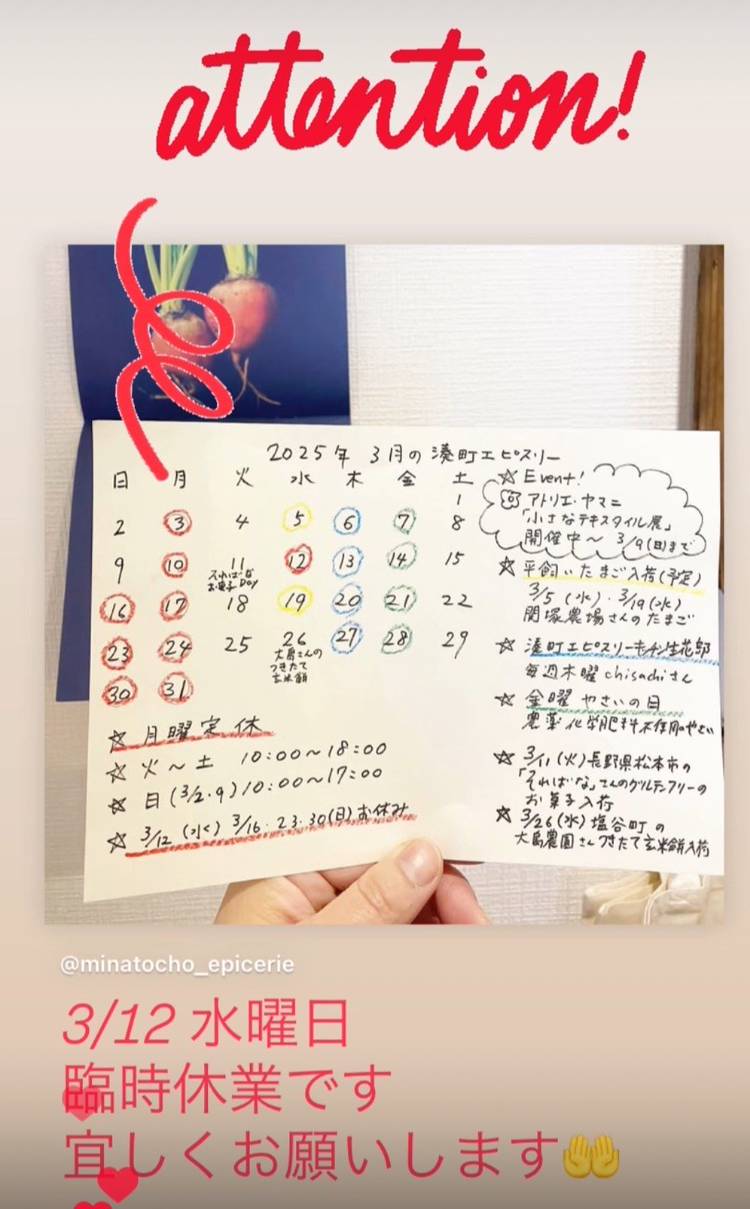 attention!
2025年 3月の湊町エピスリー
日 月 火 水 木 金 土
1
2 3 4 5 6 7 8
9 10 11 12 13 14 15
そればな
お菓子Day
16 17 18 19 20 21 22
23 24 25 26 27 28 29
大島さんの
つきたて
玄米餅
30 31
☆ 月曜定休
☆ 火～土 10:00～18:00
☆ 日(3/2.9) 10:00～17:00
☆ 3/12(水) 3/16.23.30(日)お休み
☆ Event!
アトリエ・ヤマニ
「小さなテキスタイル展」
開催中～ 3/9(日)まで
☆ 平飼いたまご入荷(予定)
3/5(水)・3/19(水)
関塚農場さんのたまご
☆ 湊町エピスリーキッチン生花部
毎週木曜 chisachiさん
☆ 金曜 やさいの日
農薬化学肥料不使用のやさい
☆ 3/11(火)長野県松本市の
「そればな」さんのグルテンフリーの
お菓子入荷
☆ 3/26(水)塩谷町の
大島農園さんつきたて玄米餅入荷
@minatocho_epicerie
3/12 水曜日
臨時休業です
宜しくお願いします🤲